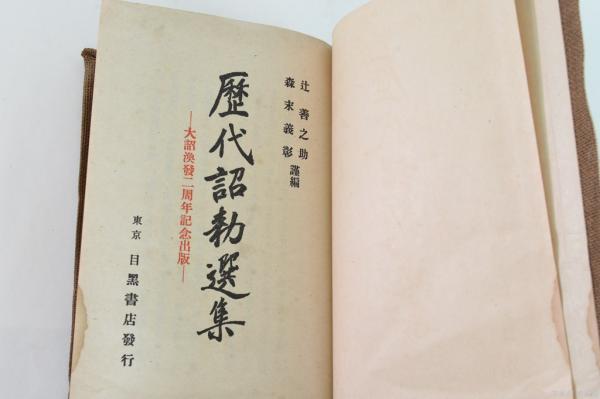 辻善之助
森末義彰 謹編
歷代詔勅選集
—大詔渙發二周年記念出版—
東京 目黑書店發行